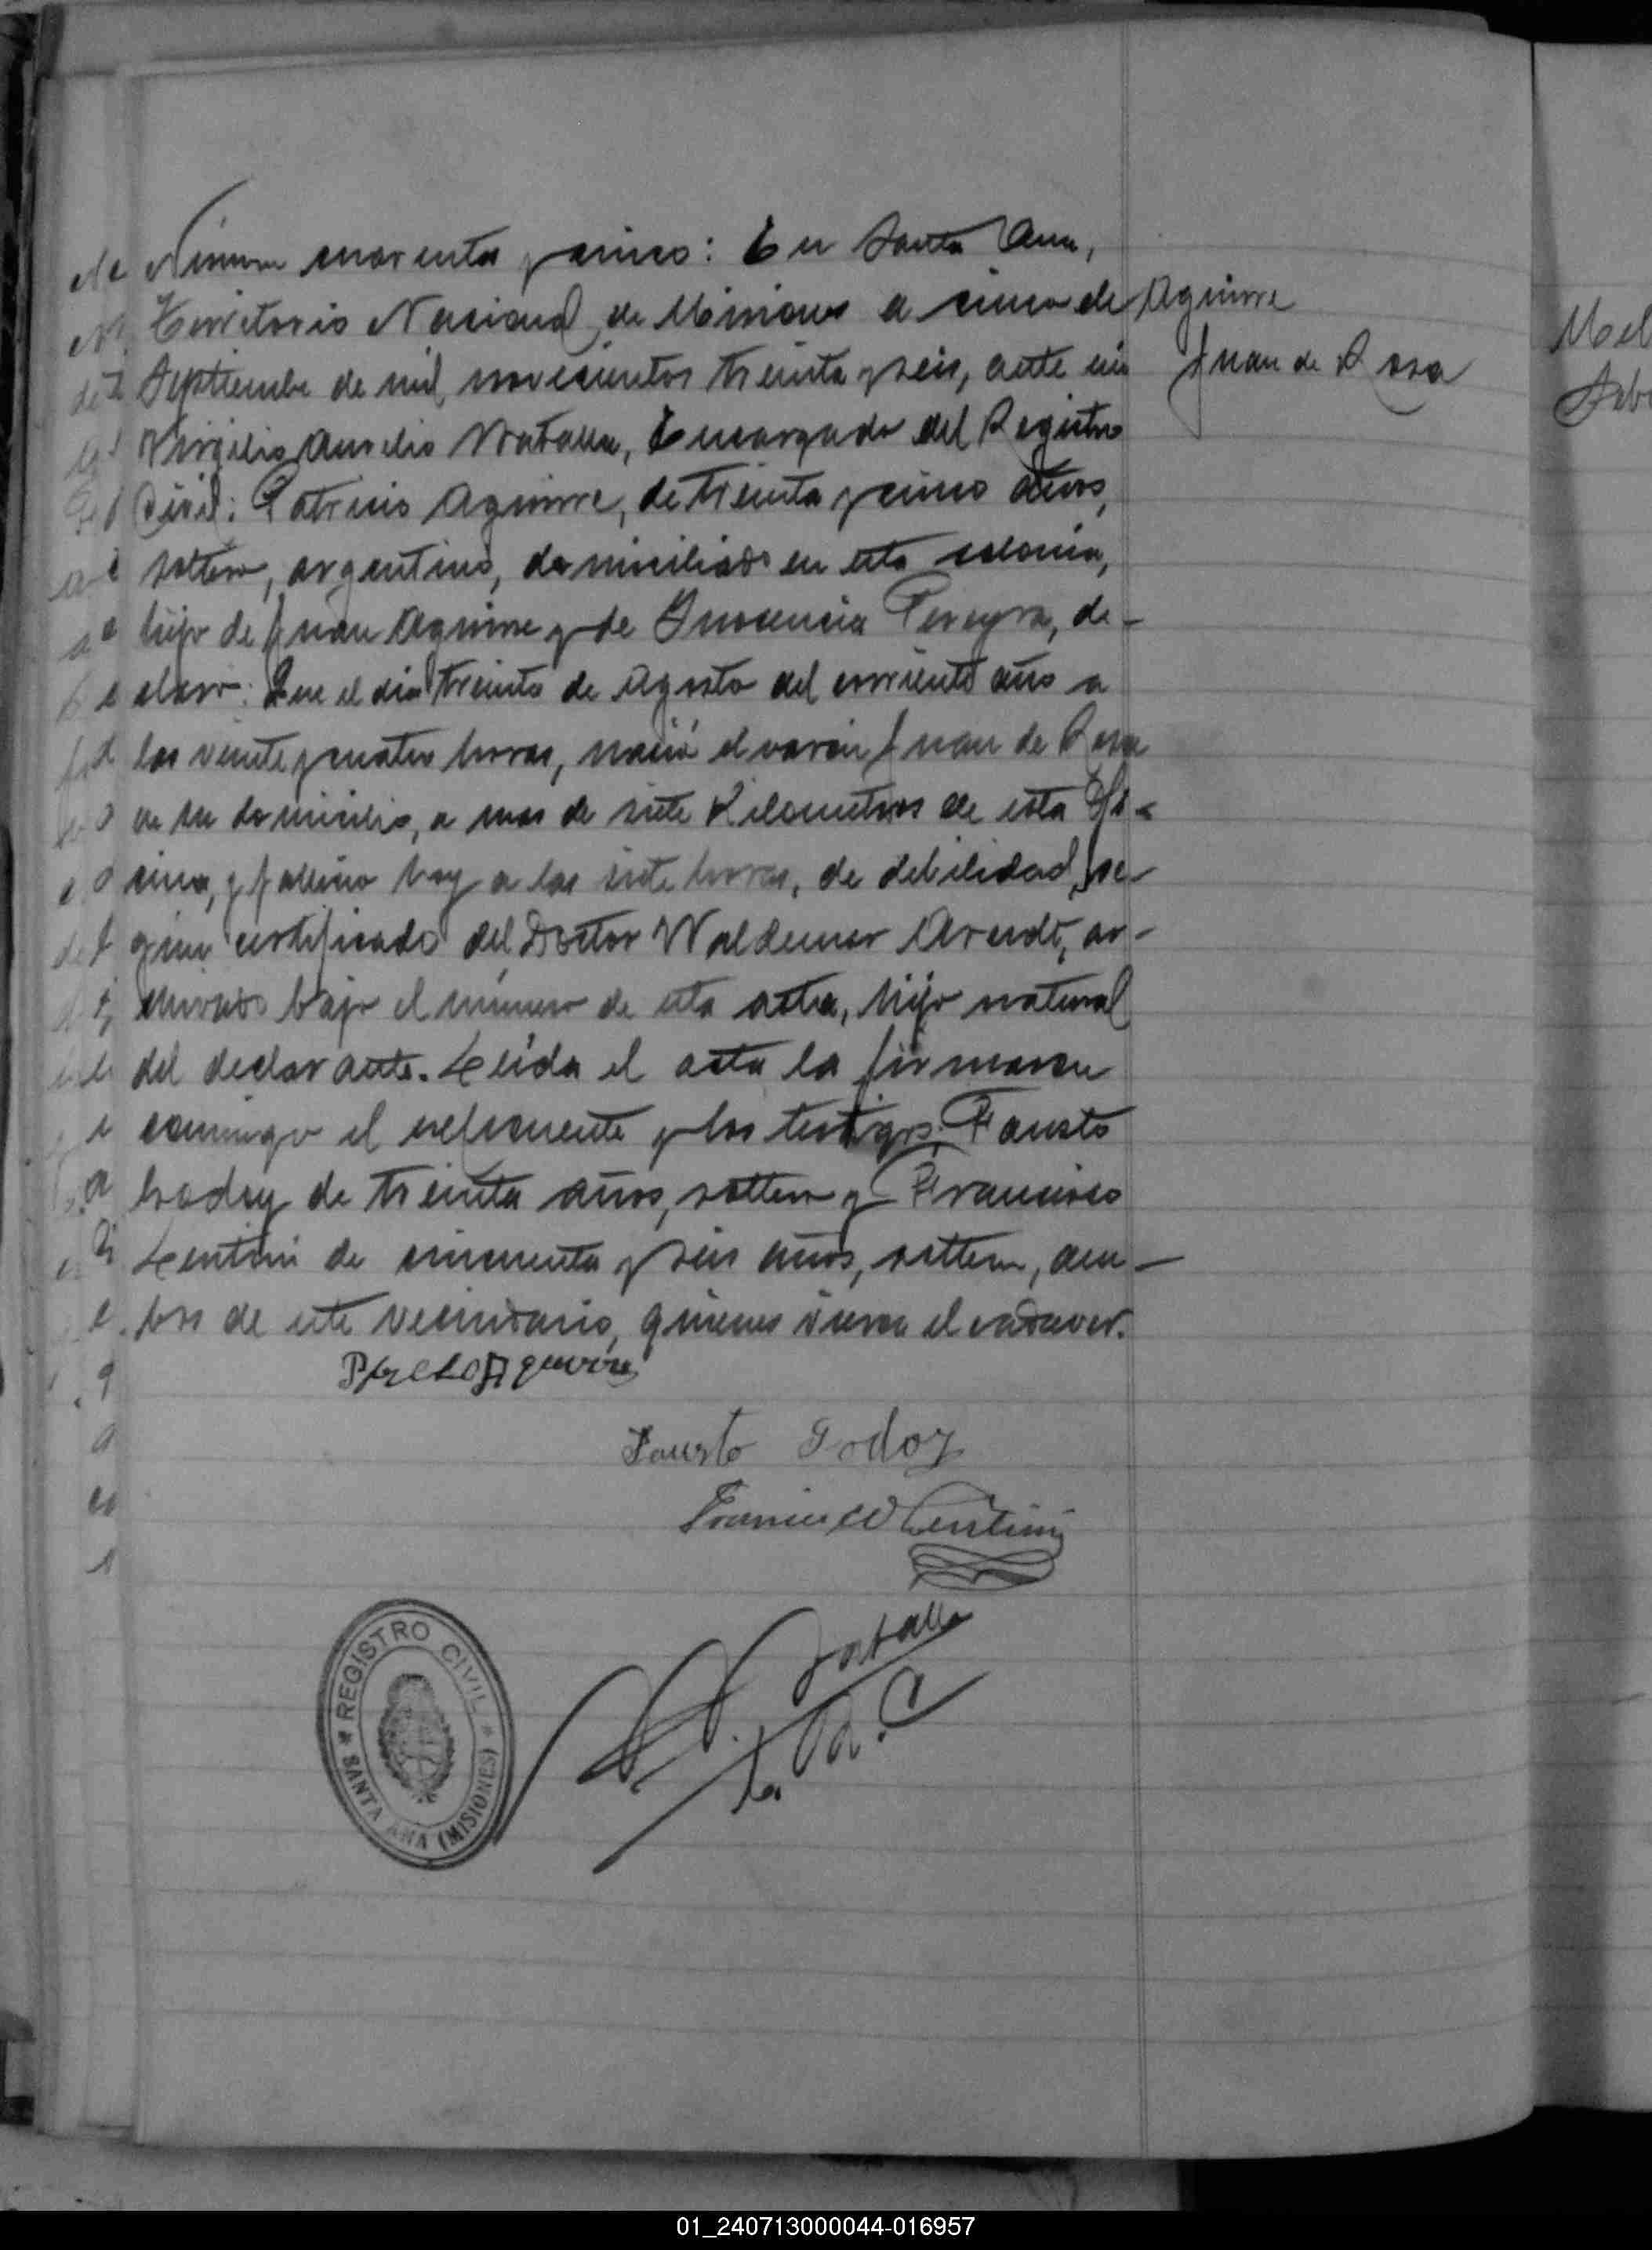 Número cuarenta y cinco: En Santa Ana,
Territorio Nacional de Misiones a cinco de
Septiembre de mil novecientos treinta y seis, ante mi
Virgilio Aurelio Zaballa, Encargado del Registro
Civil: Patricio Aguirre, de treinta y cinco años,
soltero, argentino, domiciliado en esta colonia,
hijo de Juan Aguirre y de Inocencia Pereyra, de-
claro: Que el dia treinta de Agosto del corriente año a
las veinte y cuatro horas, nació el varon Juan de Rosa
en su domicilio, a mas de siete Kilometros de esta Ofi-
cina, y fallecio hoy a las siete horas, de debilidad, se-
gún certificado del Doctor Waldemar Arendt, ar-
chivado bajo el número de esta acta, hijo natural
del declarante. Leida el acta la firmaron
conmigo el exponente y los testigos: Fausto
Godoy de treinta años, soltero y Francisco
Lentini de cincuenta y seis años, soltero, am-
bos de este vecindario, quienes vieron el cadaver.
Aguirre
Juan de Rosa
Aguirre
Fausto Godoy
Francisco Lentini
Zaballa
REGISTRO CIVIL
SANTA ANA (MISIONES)
01_240713000044-016957